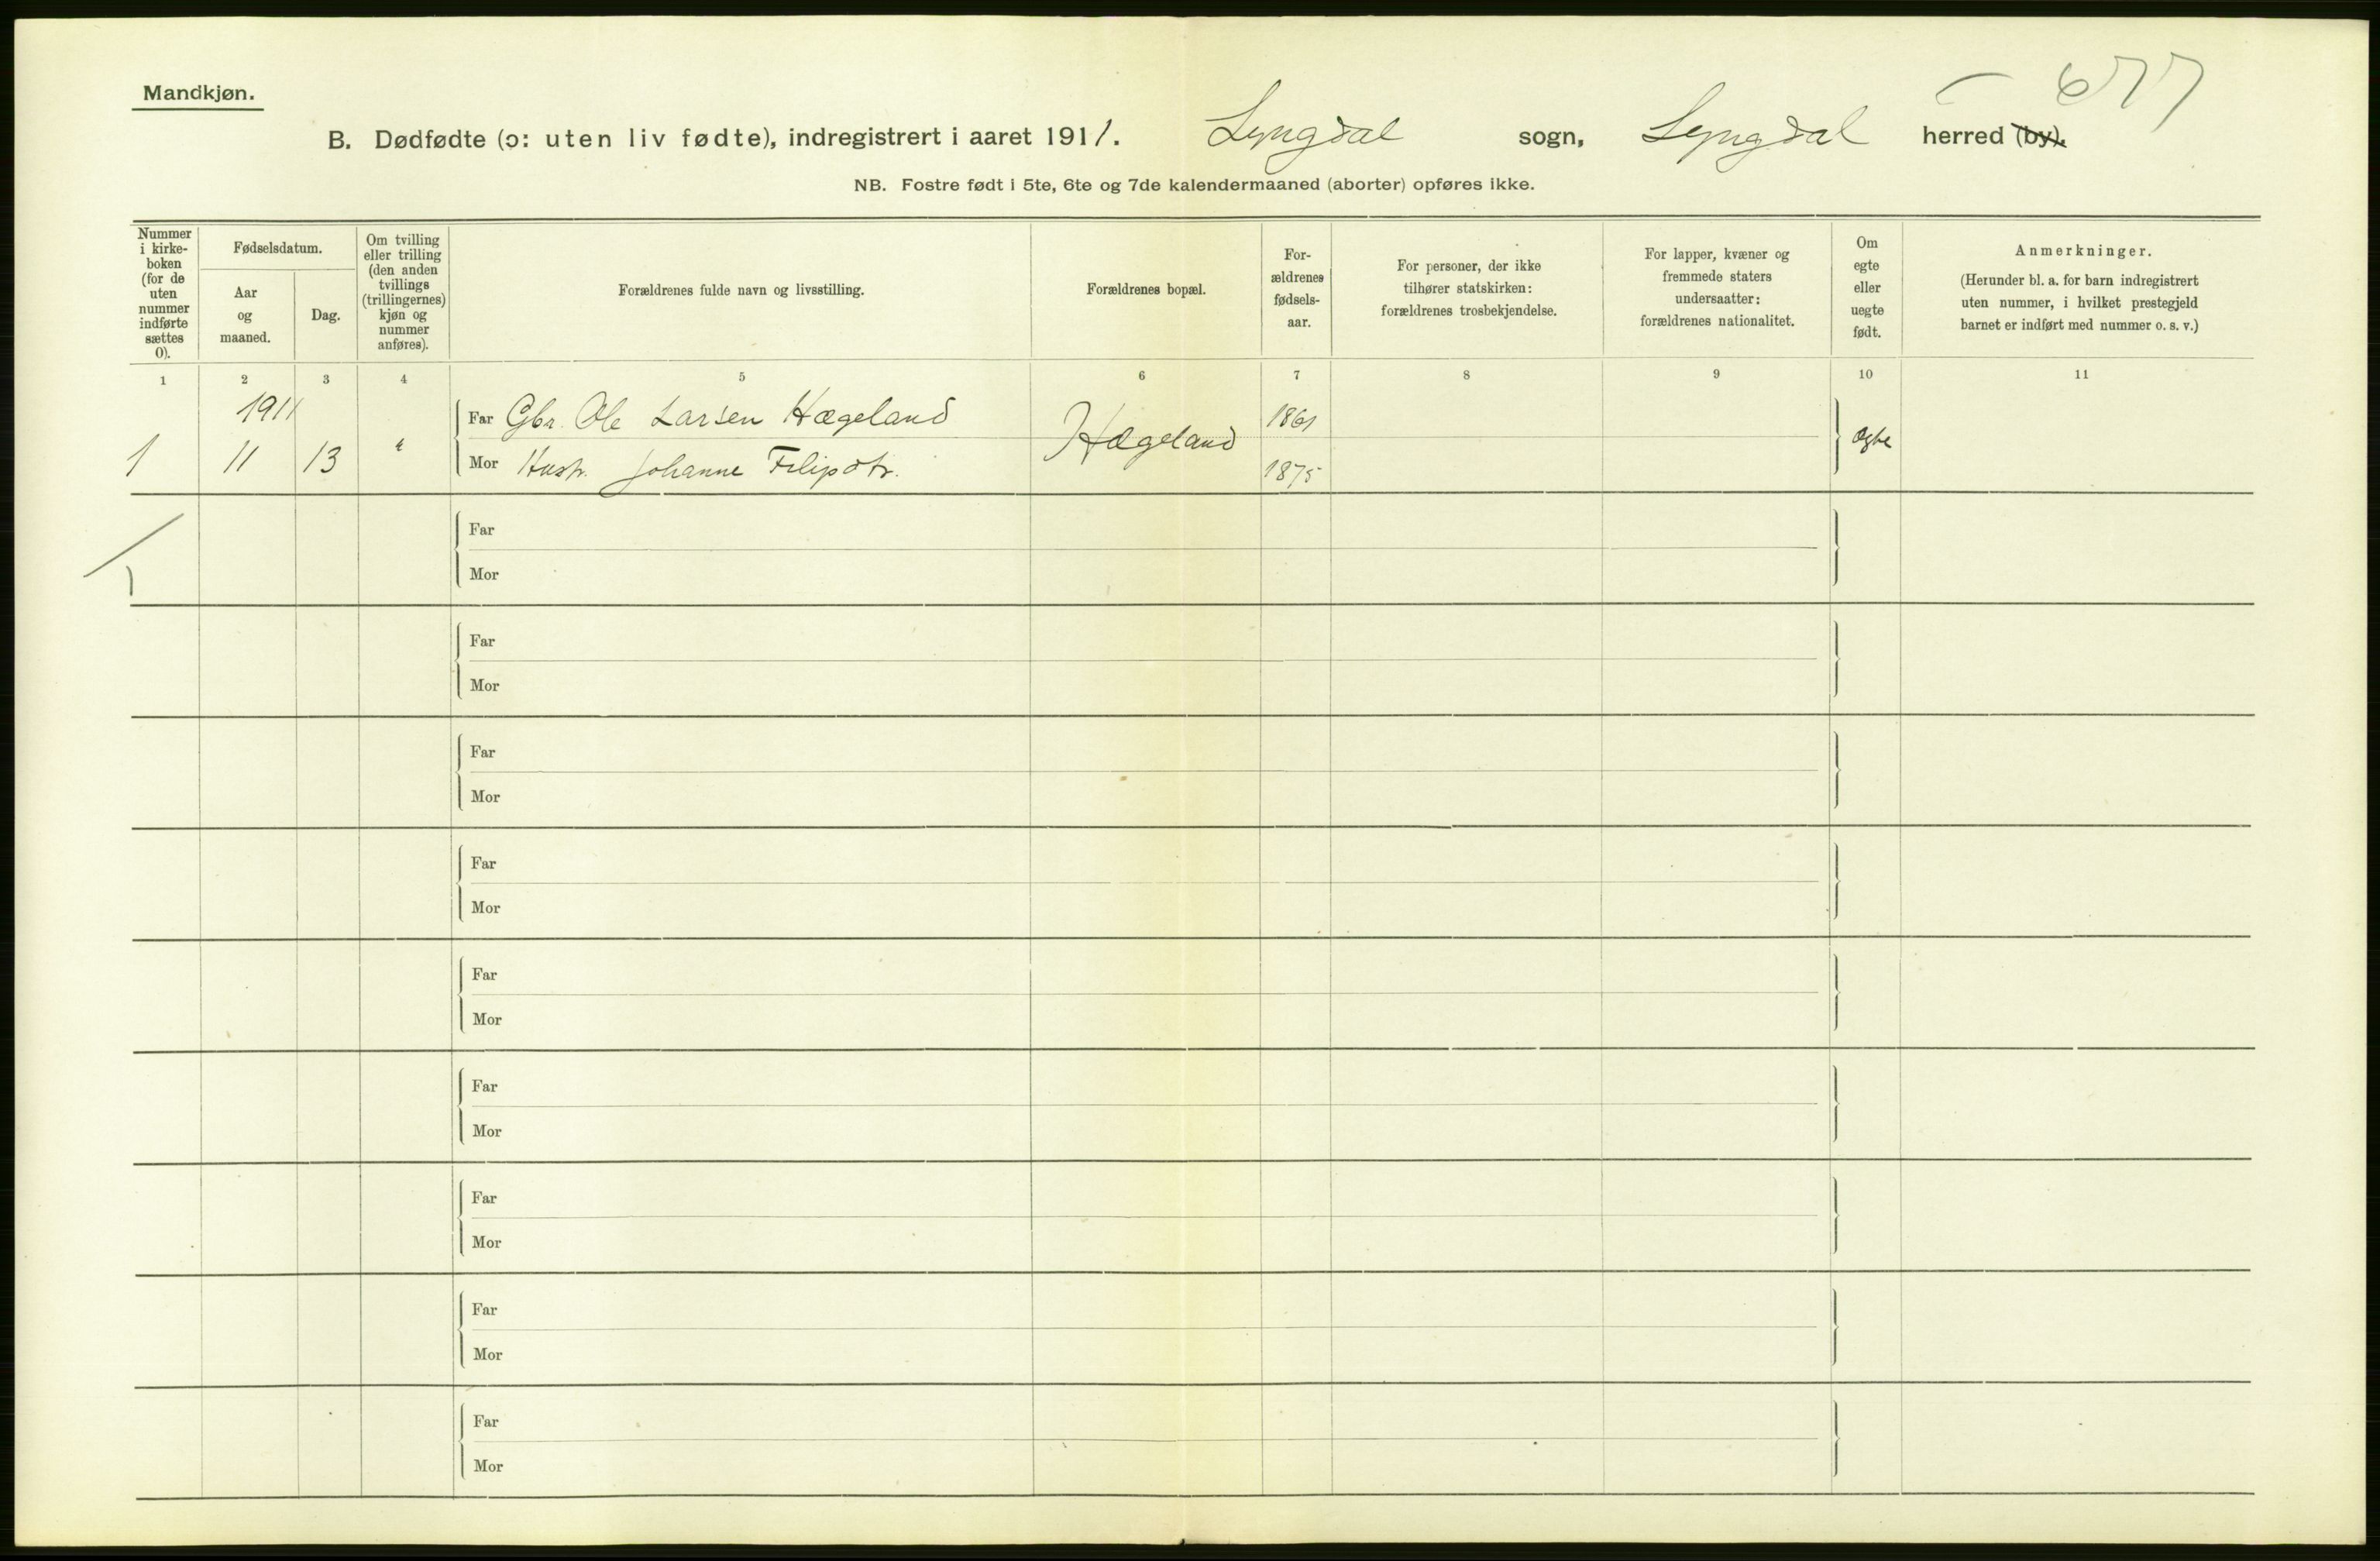 677
Mandkjøn.
B. Dødfødte (ɔ: uten liv fødte), indregistrert i aaret 1911. Lyngdal sogn, Lyngdal herred (by).
NB. Fostre født i 5te, 6te og 7de kalendermaaned (aborter) opføres ikke.
Nummer
i kirke-
boken
(for de
uten
nummer
indførte
sættes
0).
Fødselsdatum.
Aar
og
maaned.
Dag.
Om tvilling
eller trilling
(den anden
tvillings
(trillingernes)
kjøn og
nummer
anføres).
Forældrenes fulde navn og livsstilling.
Forældrenes bopæl.
For-
ældrenes
fødsels-
aar.
For personer, der ikke
tilhører statskirken:
forældrenes trosbekjendelse.
For lapper, kvæner og
fremmede staters
undersaatter:
forældrenes nationalitet.
Om
egte
eller
uegte
født.
Anmerkninger.
(Herunder bl. a. for barn indregistrert
uten nummer, i hvilket prestegjeld
barnet er indført med nummer o. s. v.)
1 2 3 4 5 6 7 8 9 10 11
1911
Far Gbr. Ole Larsen Hægeland 1861
1 11 13 " Hægeland Ægte
Mor Hustr. Johanne Filipdtr. 1875
Far
Mor
1
Far
Mor
Far
Mor
Far
Mor
Far
Mor
Far
Mor
Far
Mor
Far
Mor
Far
Mor